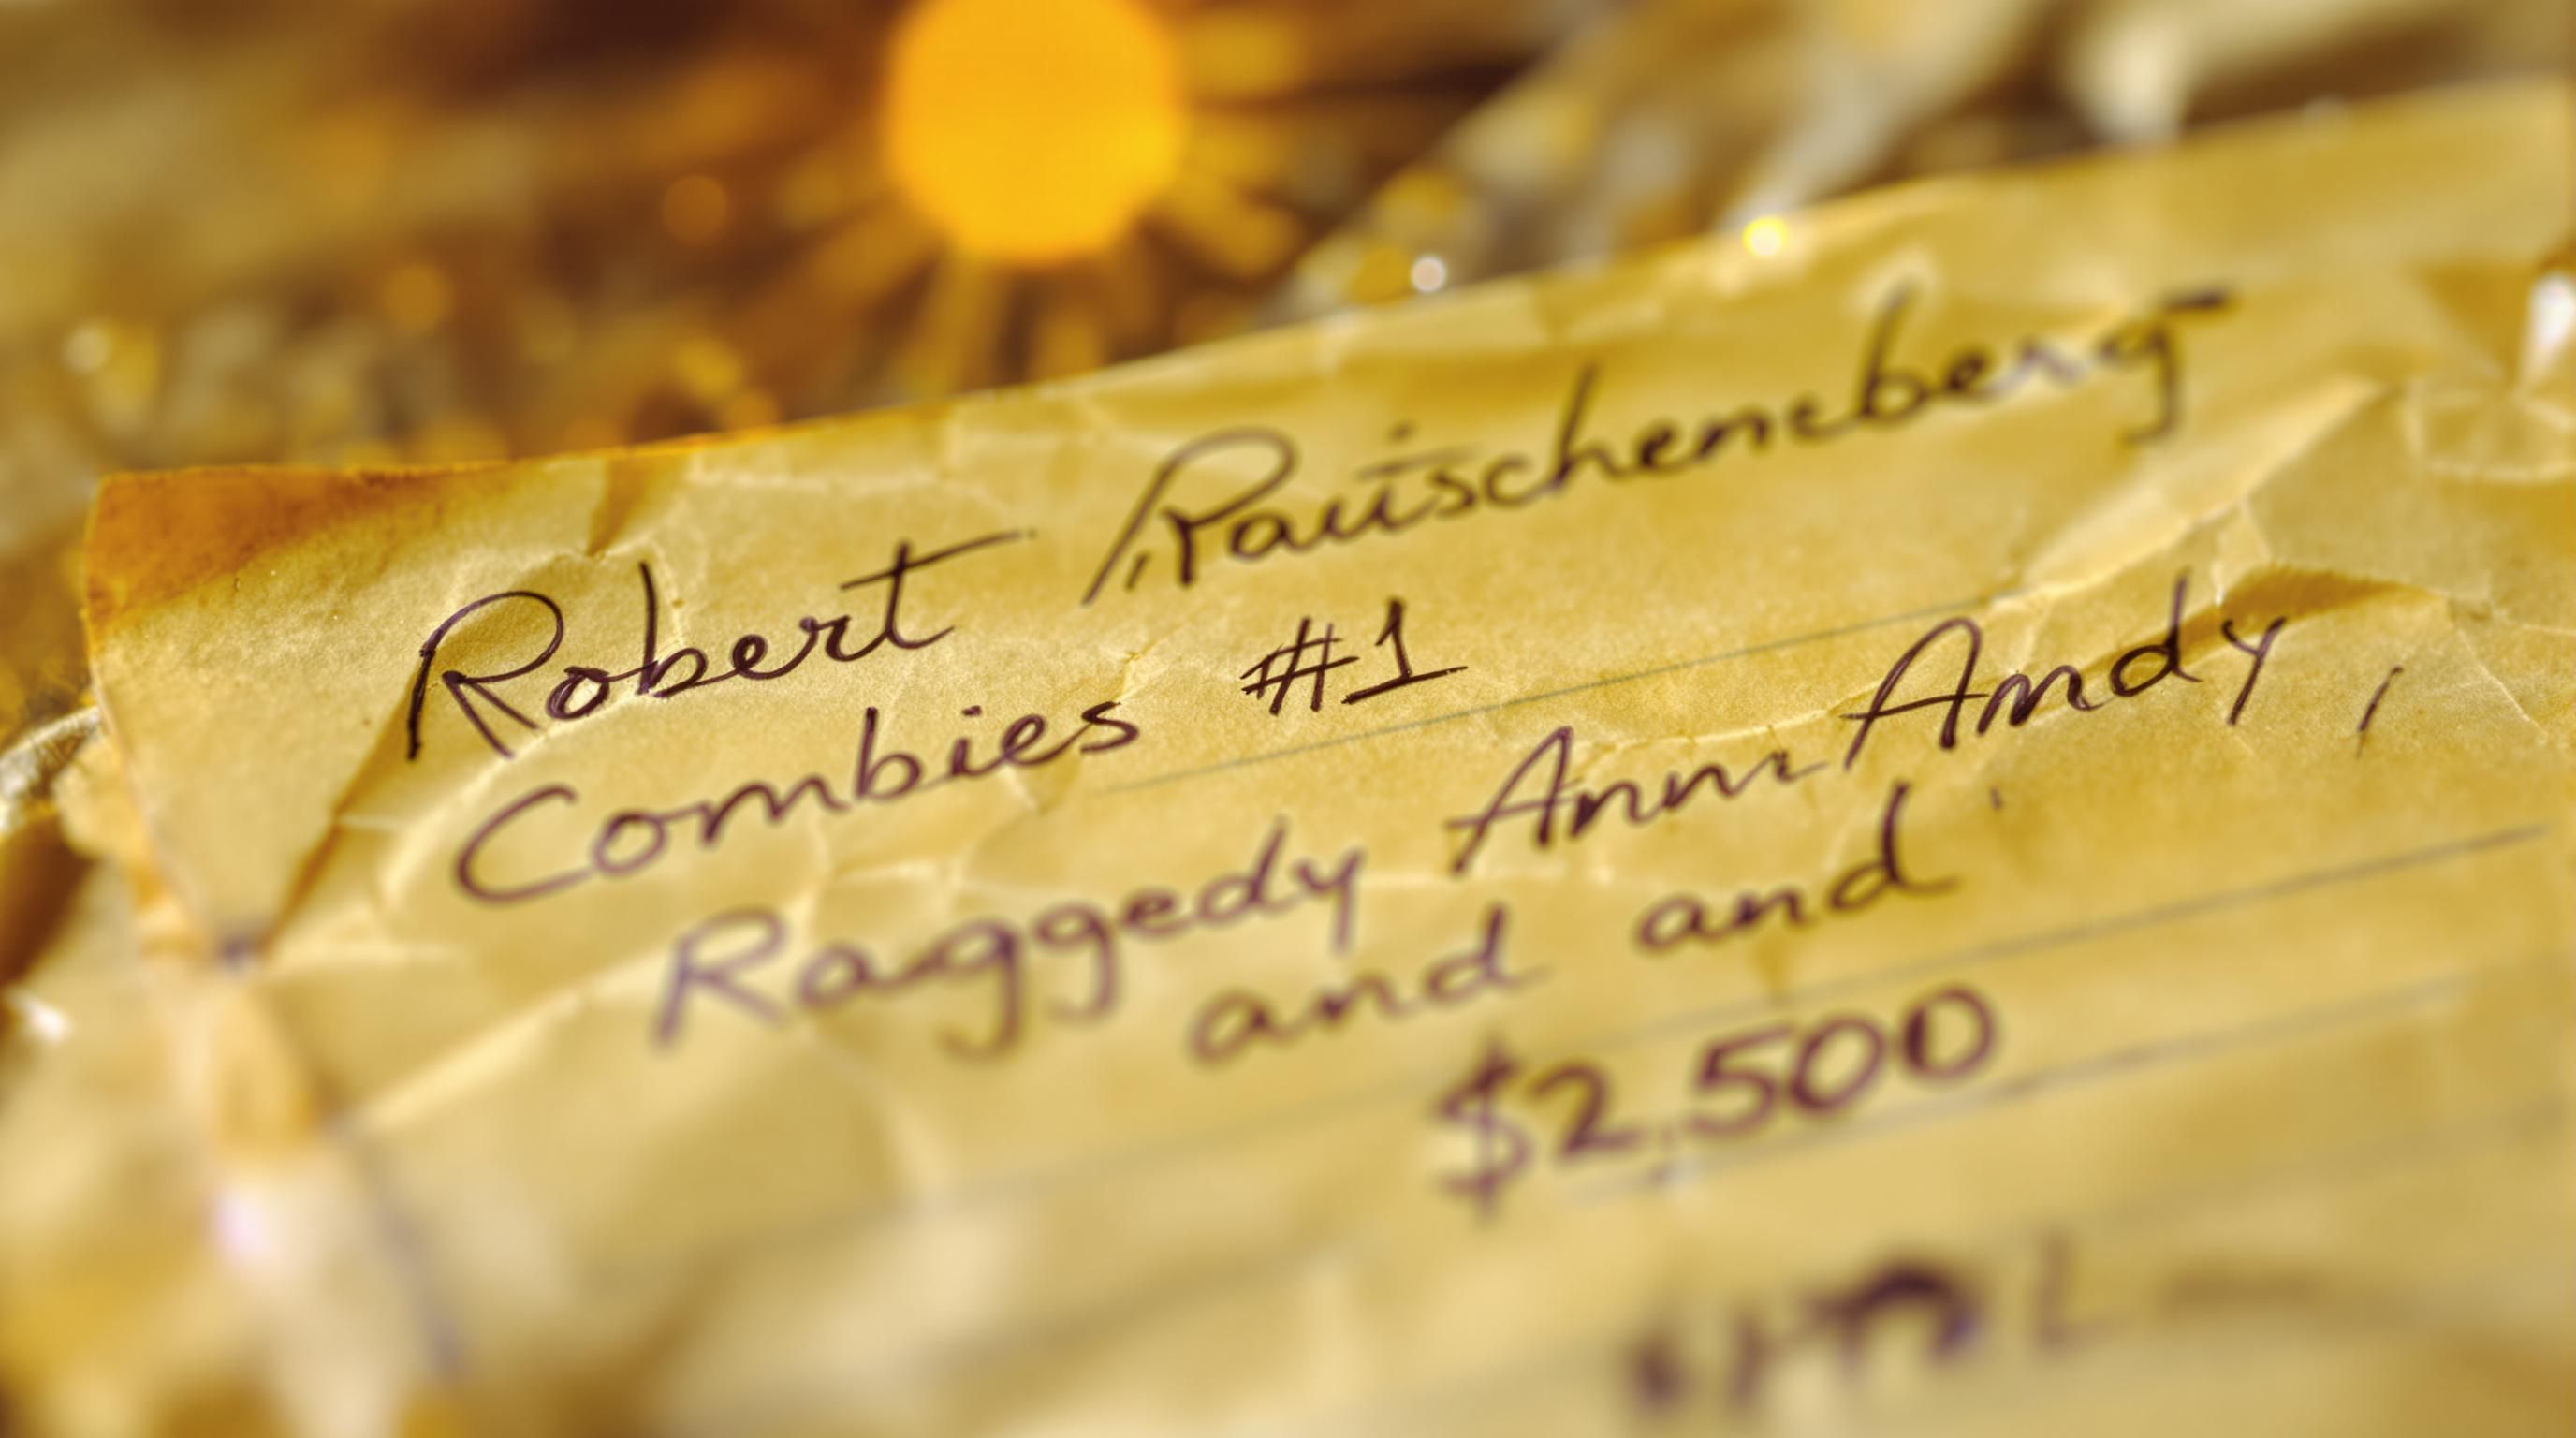 Robert Rauscheneberg
Combies #1
Raggedy Ann Andy,
and and
$2,500